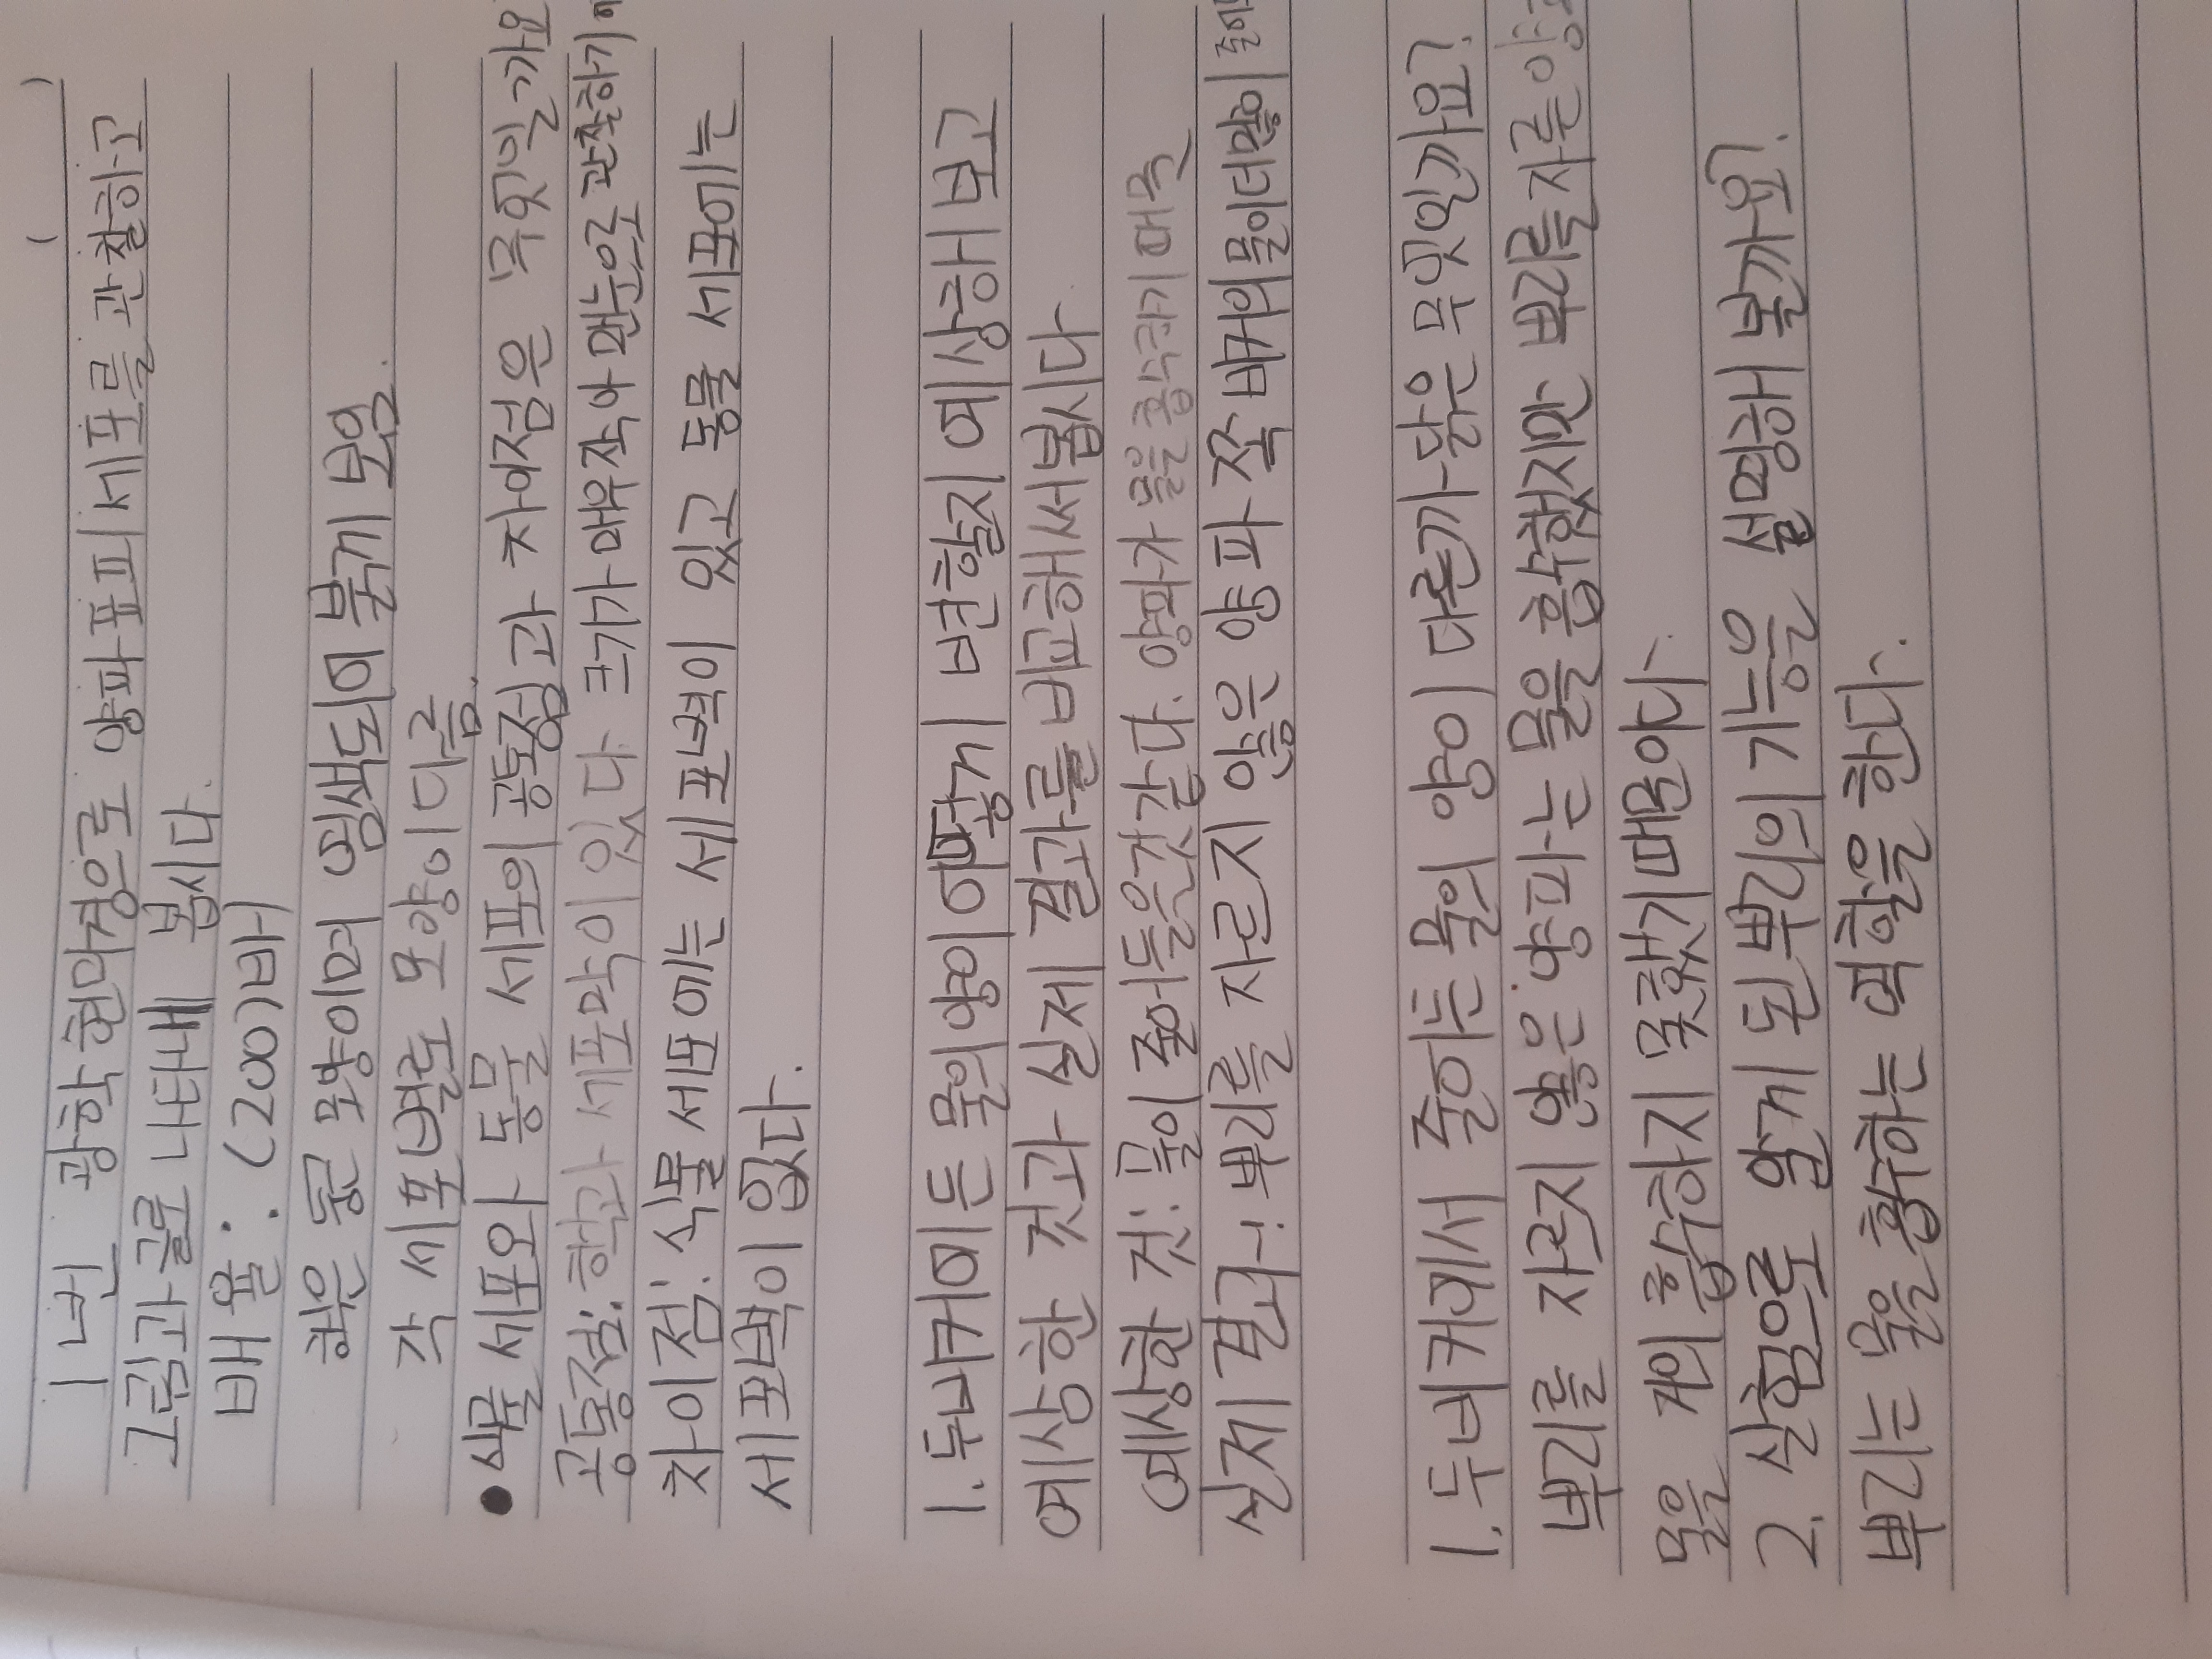 1번 광학현미경으로 양파표피세포를 관찰하고
그림과글로 나타내 봅시다.
배율 : (200)배
핵은 둥근 모양이며 염색되어 붉게 보임.
각 세포별로 모양이 다름.
● 식물 세포와 동물 세포의 공통점과 차이점은 무엇일까요
공통점: 핵과 세포막이 있다. 크기가 매우작아 맨눈으로 관찰하기
차이점: 식물 세포에는 세포벽이 있고 동물 세포에는
세포벽이 없다.
1. 두비커에든 물의양이 어떻게 변할지 예상해보고
예상한 것과 실제 결과를비교해써봅시다
예상한 것: 물이 줄어들은것같다. 양파가 물을 흡수하기 때문
실제 결과: 뿌리를 자르지 않은 양파 쪽 비커의물이더많이
1. 두비커에서 줄어든 물의 양이 다른까닭은 무엇인가요?
뿌리를 자르지 않은 양파는 물을 흡수했지만 뿌리를자른양
물을 거의 흡수하지 못했기때문이다.
2. 실험으로 알게 된뿌리의 기능을 설명해 볼까요?
뿌리는 물을 흡수하는 역할을 한다.